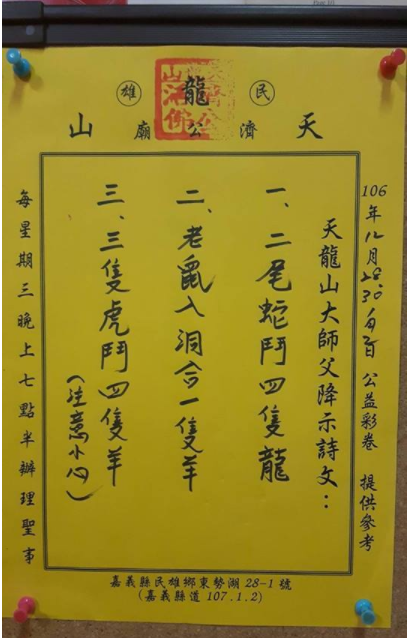 民 龍 雄
天 濟 公 廟 山
106年12月28.30 公益彩卷 提供參考
天龍山大師父降示詩文：
一、二尾蛇鬥四隻龍
二、老鼠入洞合一隻羊
三、三隻虎鬥四隻羊
（注意小心）
每星期三晚上七點半辦理聖事
嘉義縣民雄鄉東勢湖 28-1 號
(嘉義縣道 107.1.2)